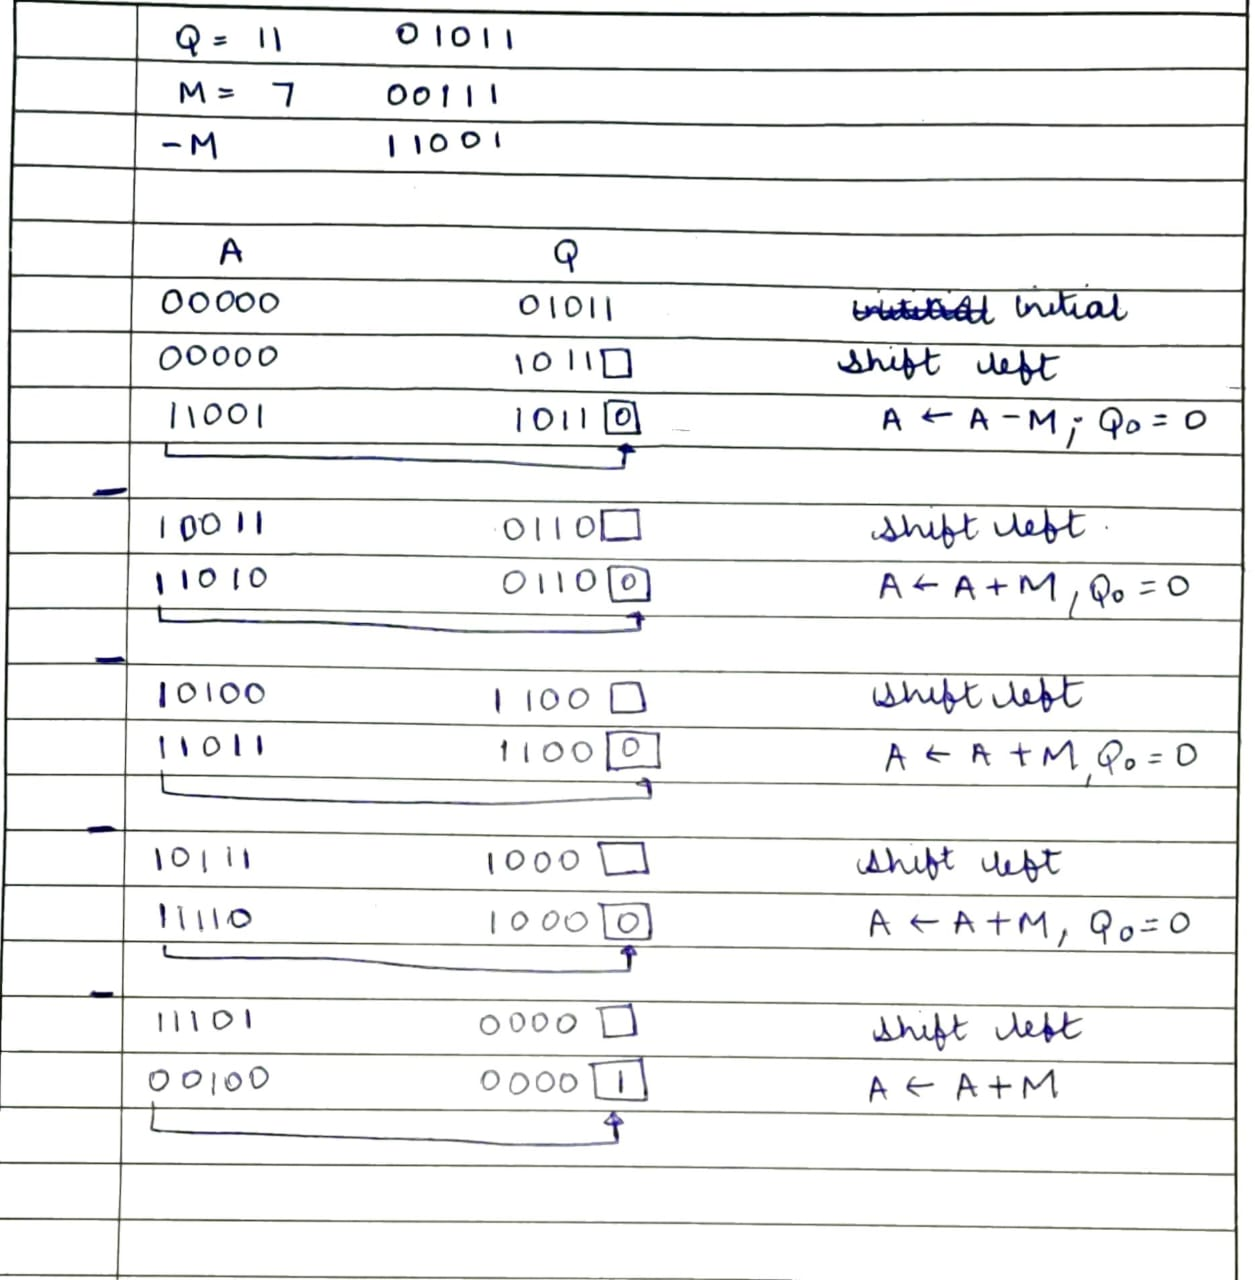 Q = 11 01011
M = 7 00111
-M 11001
A Q
00000 01011 initial
00000 1011□ shift left
11001 1011 0 A ← A - M ; Q0 = 0
10011 0110□ shift left.
11010 0110 0 A ← A + M, Q0 = 0
10100 1100 □ shift left
11011 1100 0 A ← A + M, Q0 = 0
10111 1000 □ shift left
11110 1000 0 A ← A + M, Q0 = 0
11101 0000 □ shift left
00100 0000 1 A ← A + M